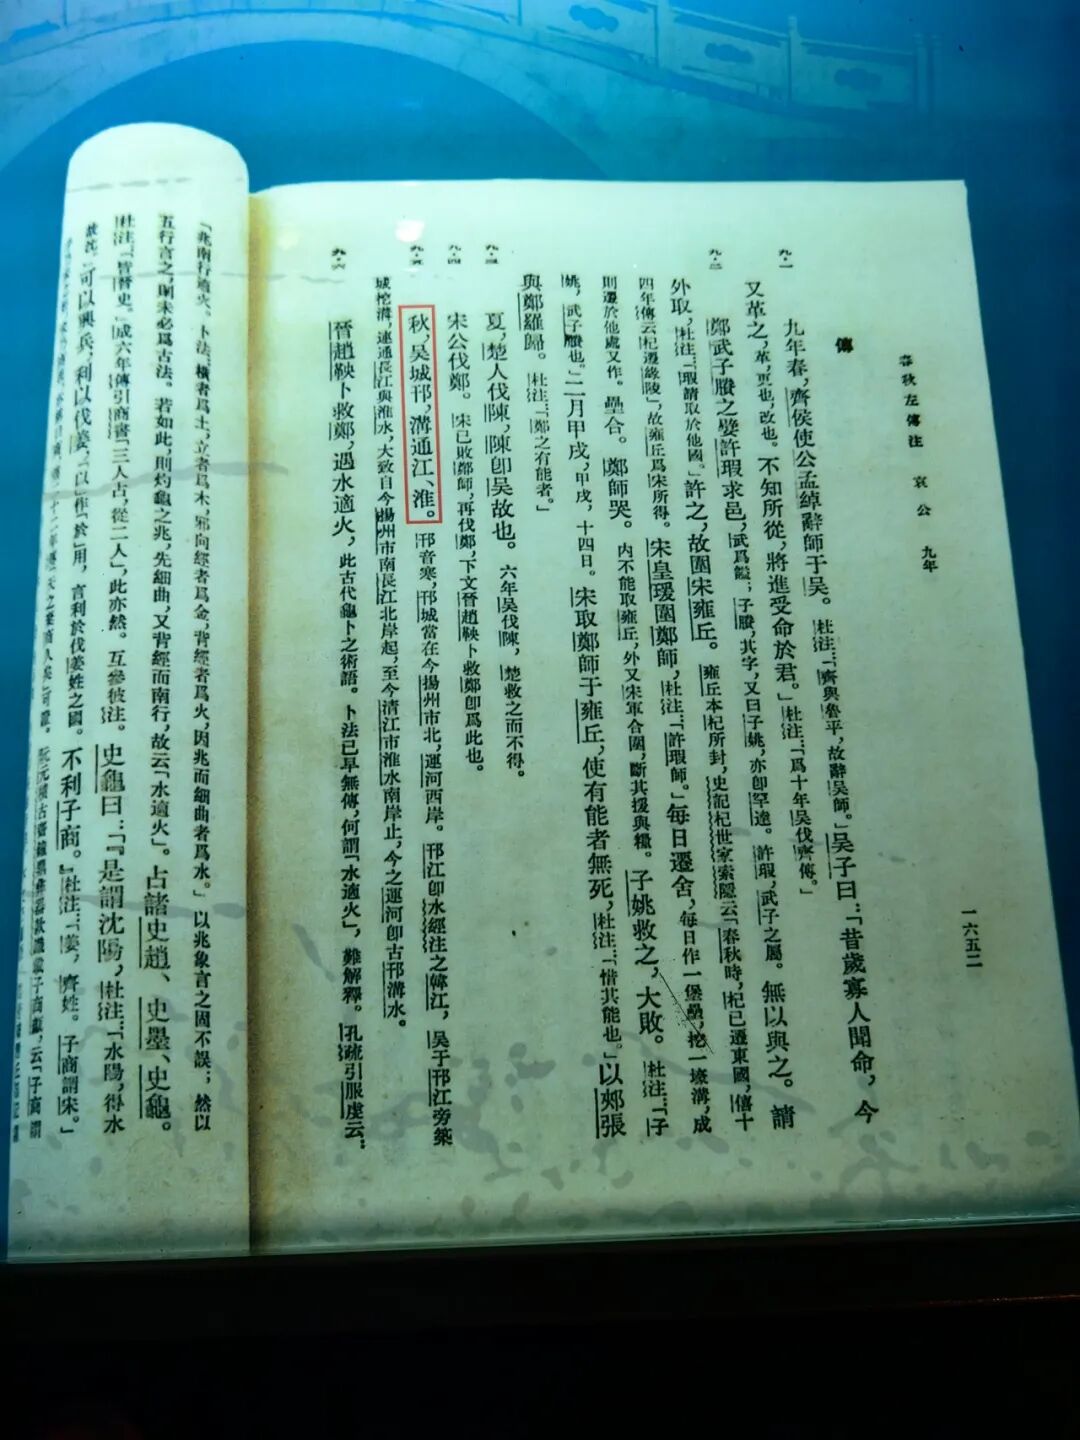 春秋左傳注　哀公　九年
一六五二
傳
九·一
九年春，齊侯使公孟綽辭師于吳。杜注：「齊與魯平，故辭吳師。」吳子曰：「昔歲寡人聞命，今
又革之，革，更也，改也。不知所從，將進受命於君。」杜注：「爲十年吳伐齊傳。」
九·二
鄭武子賸之嬖許瑕求邑，武爲謚；子賸，其字，又曰子姚，亦卽罕達。許瑕，武子之屬。無以與之。請
外取，杜注：「瑕請取於他國。」許之，故圍宋雍丘。雍丘本杞所封，史記杞世家索隱云「春秋時，杞已遷東國，僖十
四年傳云杞遷緣陵」，故雍丘爲宋所得。宋皇瑗圍鄭師，杜注：「許瑕師。」每日遷舍，每日作一堡壘，挖一壕溝，成
則遷於他處又作。壘合。鄭師哭。内不能取雍丘，外又宋軍合圍，斷其援與糧。子姚救之，大敗。杜注：「子
姚，武子賸也。」二月甲戌，甲戌，十四日。宋取鄭師于雍丘，使有能者無死，杜注：「惜其能也。」以郟張
與鄭羅歸。杜注：「鄭之有能者。」
九·三
夏，楚人伐陳，陳卽吳故也。六年吳伐陳，楚救之而不得。
九·四
宋公伐鄭。宋已敗鄭師，再伐鄭，下文晉趙鞅卜救鄭卽爲此也。
九·五
秋，吳城邗，溝通江、淮。邗音寒，邗城當在今揚州市北，運河西岸。邗江卽水經注之韓江，吳于邗江旁築
城挖溝，連通長江與淮水，大致自今揚州市南長江北岸起，至今清江市淮水南岸止，今之運河卽古邗溝水。
九·六
晉趙鞅卜救鄭，遇水適火，此古代龜卜之術語。卜法已早無傳，何謂「水適火」，難解釋。孔疏引服虔云：
「兆南行適火。卜法：橫者爲土，立者爲木，邪向經者爲金，背經者爲火，因兆而細曲者爲水。」以兆象言之固不誤；然以
五行言之，則未必爲古法。若如此，則灼龜之兆，先細曲，又背經而南行，故云「水適火」。占諸史趙、史墨、史龜。
杜注：「皆晉史。」成六年傳引商書「三人占，從二人」，此亦然。互參彼注。史龜曰：「『是謂沈陽，杜注：「水陽，得水
故沈。」可以興兵，利以伐姜，「以」作「於」用，言利於伐姜姓之國。不利子商。』杜注：「姜，齊姓。子商謂宋。」